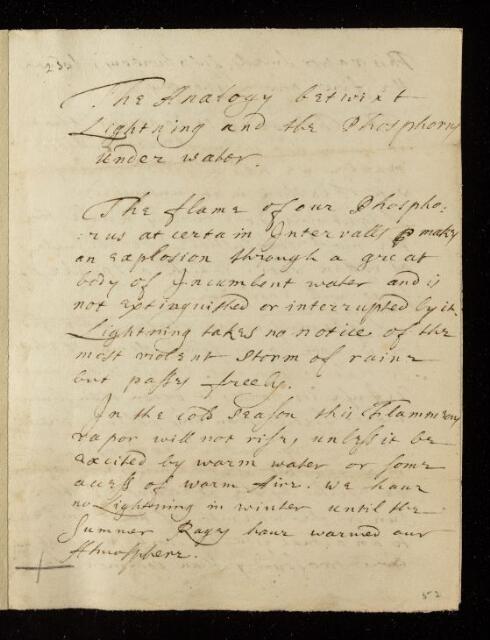 The Analogy betwixt
Lightning and the Phosphorus
under water.
The flame of our Phospho:
:rus at certain Intervalls makes
an explosion through a great
body of Incumbent water and is
not extinguished or interrupted by it.
Lightning takes no notice of the
most violent storm of raine
but passes freely.
In the cold season this Flammeous
vapor will not rise, unless it be
excited by warm water or some
acess of warm Aire: we have
no Lightning in winter until the
Summer Rayes have warmed our
Atmosphere.
52